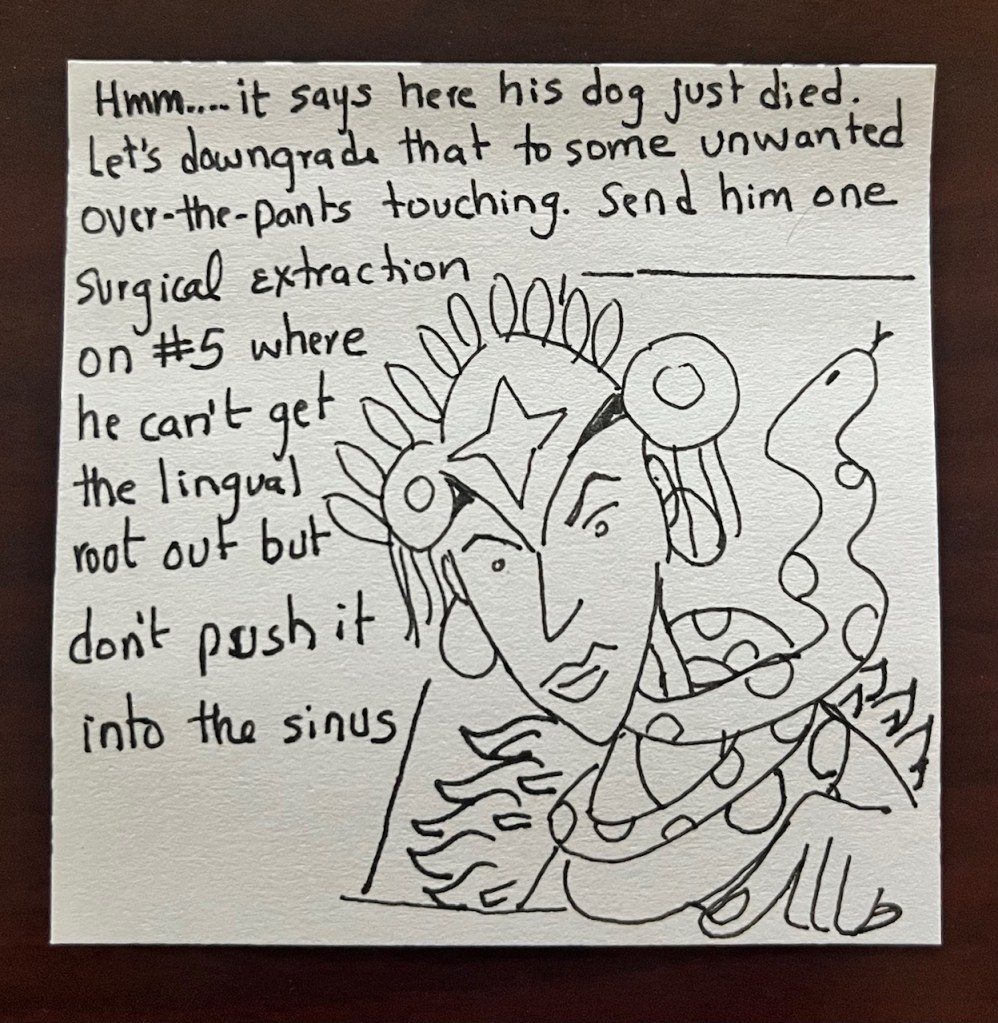 Hmm.... it says here his dog just died.
Let's downgrade that to some unwanted
over-the-pants touching. Send him one
surgical extraction
on #5 where
he can't get
the lingual
root out but
don't push it
into the sinus